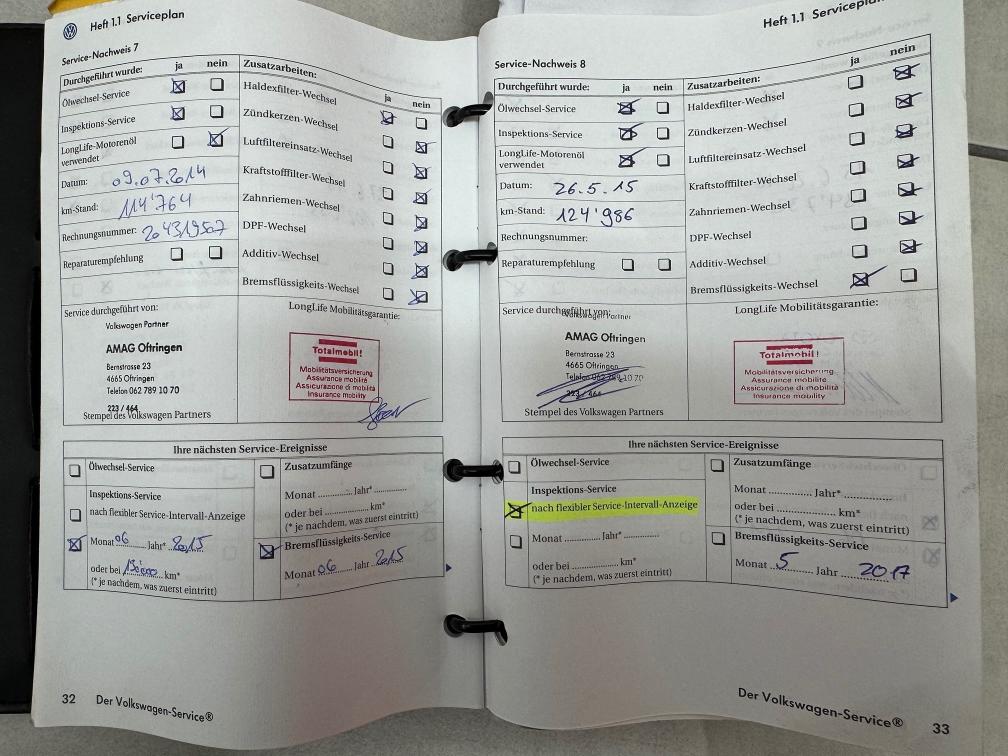 Heft 1.1 Serviceplan
Service-Nachweis 7
Durchgeführt wurde: ja nein
Ölwechsel-Service
Inspektions-Service
LongLife-Motorenöl
verwendet
Datum: 09.07.2014
km-Stand: 114'764
Rechnungsnummer: 204319507
Reparaturempfehlung
Zusatzarbeiten:
ja nein
Haldexfilter-Wechsel
Zündkerzen-Wechsel
Luftfiltereinsatz-Wechsel
Kraftstofffilter-Wechsel
Zahnriemen-Wechsel
DPF-Wechsel
Additiv-Wechsel
Bremsflüssigkeits-Wechsel
Service durchgeführt von:
Volkswagen Partner
AMAG Oftringen
Bernstrasse 23
4665 Oftringen
Telefon 062 789 10 70
223 / 464
Stempel des Volkswagen Partners
LongLife Mobilitätsgarantie:
Totalmobil!
Mobilitätsversicherung
Assurance mobilité
Assicurazione di mobilità
Insurance mobility
Ihre nächsten Service-Ereignisse
Ölwechsel-Service
Inspektions-Service
nach flexibler Service-Intervall-Anzeige
Monat 06 Jahr* 2015
oder bei km*
(* je nachdem, was zuerst eintritt)
Zusatzumfänge
Monat Jahr*
oder bei km*
(* je nachdem, was zuerst eintritt)
Bremsflüssigkeits-Service
Monat 06 Jahr 2015
32 Der Volkswagen-Service®
Heft 1.1 Serviceplan
Service-Nachweis 8
Durchgeführt wurde: ja nein
Ölwechsel-Service
Inspektions-Service
LongLife-Motorenöl
verwendet
Datum: 26.5.15
km-Stand: 124'986
Rechnungsnummer:
Reparaturempfehlung
Zusatzarbeiten:
ja nein
Haldexfilter-Wechsel
Zündkerzen-Wechsel
Luftfiltereinsatz-Wechsel
Kraftstofffilter-Wechsel
Zahnriemen-Wechsel
DPF-Wechsel
Additiv-Wechsel
Bremsflüssigkeits-Wechsel
Service durchgeführt von:
Volkswagen Partner
AMAG Oftringen
Bernstrasse 23
4665 Oftringen
Telefon 062 789 10 70
223 / 464
Stempel des Volkswagen Partners
LongLife Mobilitätsgarantie:
Totalmobil!
Mobilitätsversicherung
Assurance mobilité
Assicurazione di mobilità
Insurance mobility
Ihre nächsten Service-Ereignisse
Ölwechsel-Service
Inspektions-Service
nach flexibler Service-Intervall-Anzeige
Monat Jahr*
oder bei km*
(* je nachdem, was zuerst eintritt)
Zusatzumfänge
Monat Jahr*
oder bei km*
(* je nachdem, was zuerst eintritt)
Bremsflüssigkeits-Service
Monat 5 Jahr 2017
Der Volkswagen-Service® 33